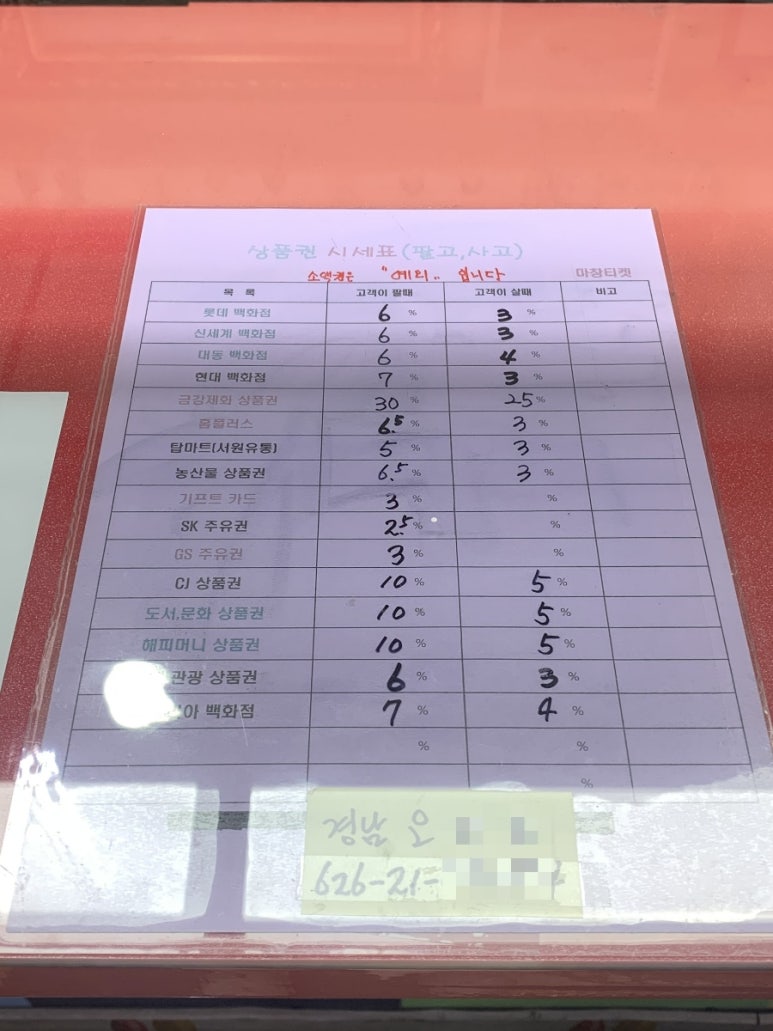 상품권 시세표(팔고,사고)
소액권은 "예외" 입니다 마창티켓
목 록 고객이 팔때 고객이 살때 비고
롯데 백화점 6 % 3 %
신세계 백화점 6 % 3 %
대동 백화점 6 % 4 %
현대 백화점 7 % 3 %
금강제화 상품권 30 % 25 %
홈플러스 6.5 % 3 %
탑마트(서원유통) 5 % 3 %
농산물 상품권 6.5 % 3 %
기프트 카드 3 % %
SK 주유권 2.5 % %
GS 주유권 3 % %
CJ 상품권 10 % 5 %
도서.문화 상품권 10 % 5 %
해피머니 상품권 10 % 5 %
관광 상품권 6 % 3 %
아 백화점 7 % 4 %
% %
%
경남 오
626-21-